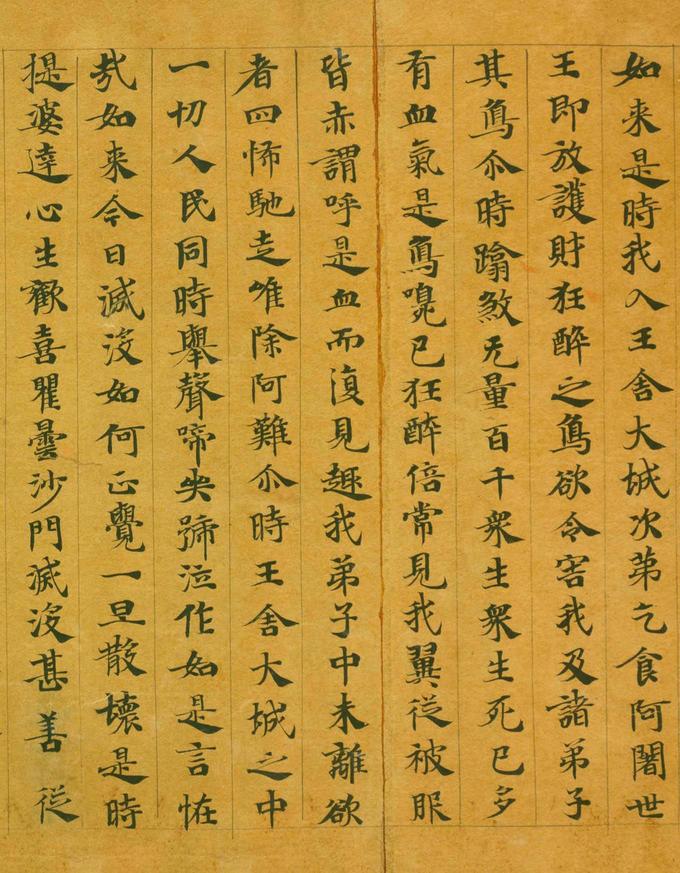 如来是時我入王舍大城次第乞食阿闍世
王即放護財狂醉之象欲令害我及諸弟子
其象尒時蹹煞无量百千衆生衆生死已多
有血氣是象嗅已狂醉倍常見我翼從被服
皆赤謂呼是血而復見趣我弟子中未離欲
者四怖馳走唯除阿難尒時王舍大城之中
一切人民同時舉聲啼哭號泣作如是言恠
哉如来今日滅沒如何正覺一旦散壞是時
提婆達心生歡喜瞿曇沙門滅沒甚善從